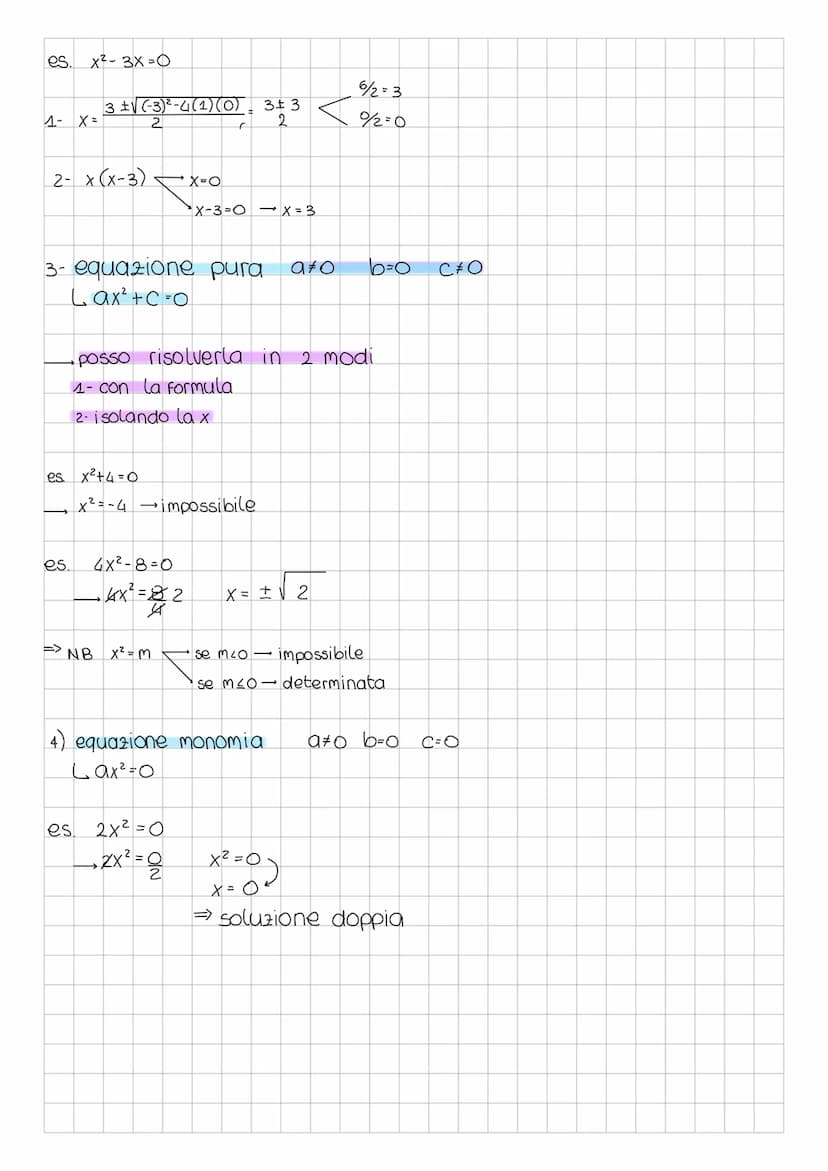 es. x²-3x=0
1- x= 3 ±√(-3)²-4(1)(0) / 2 = 3±3 / 2 < 6/2=3
0/2=0
2- x(x-3) → x=0
x-3=0 → x=3
3- equazione pura a≠0 b=0 c≠0
↳ ax²+c=0
→ posso risolverla in 2 modi
1- con la formula
2- isolando la x
es x²+4=0
→ x²=-4 → impossibile
es. 4x²-8=0
→ 4x²=8/4 2 x= ±√2
=> NB x²=m se m<0 → impossibile
se m≤0 → determinata
4) equazione monomia a≠0 b=0 c=0
↳ ax²=0
es. 2x²=0
→ 2x²=0/2 x²=0
x=0
=> soluzione doppia